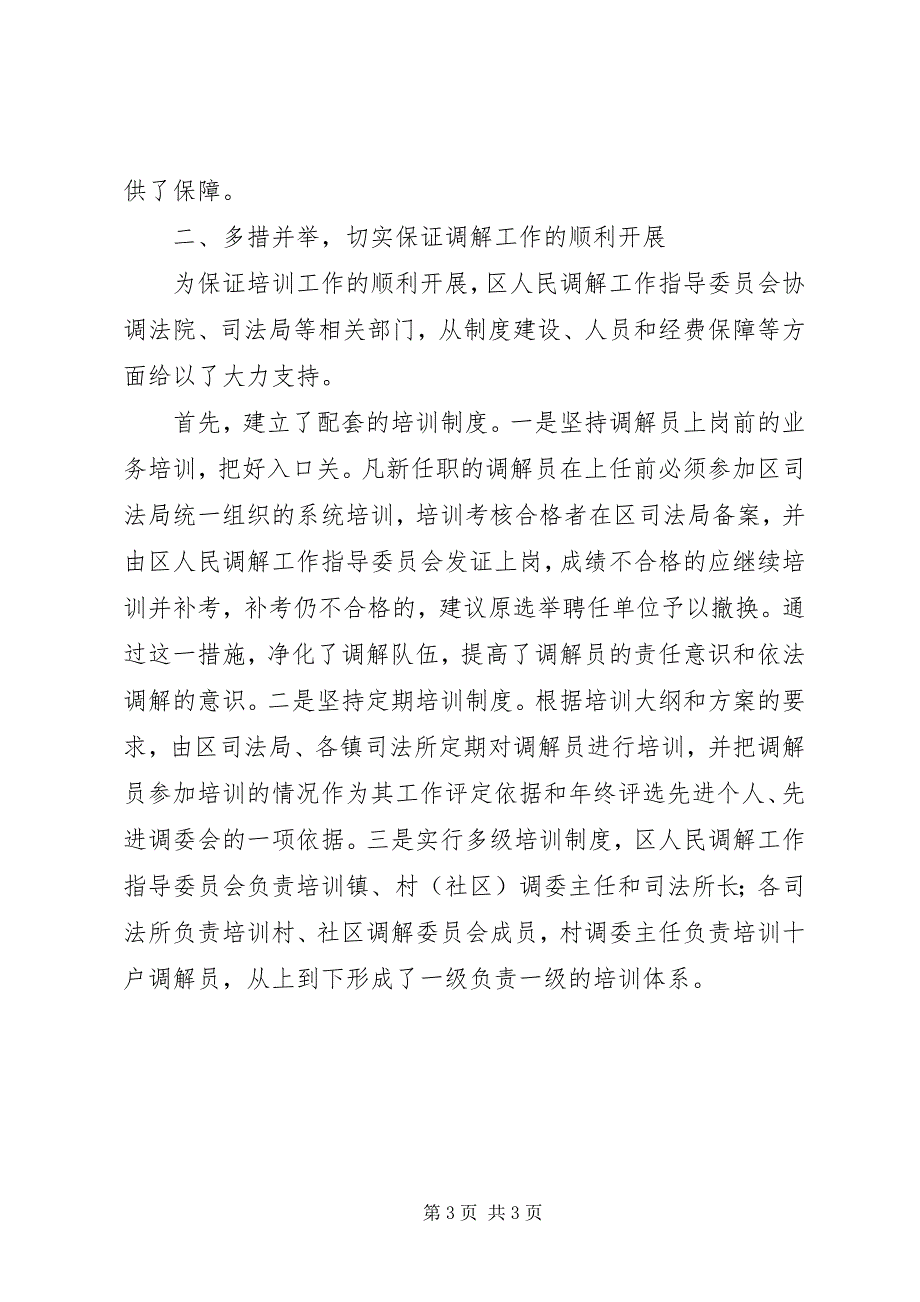 供了保障。
二、多措并举，切实保证调解工作的顺利开展
为保证培训工作的顺利开展，区人民调解工作指导委员会协
调法院、司法局等相关部门，从制度建设、人员和经费保障等方
面给以了大力支持。
首先，建立了配套的培训制度。一是坚持调解员上岗前的业
务培训，把好入口关。凡新任职的调解员在上任前必须参加区司
法局统一组织的系统培训，培训考核合格者在区司法局备案，并
由区人民调解工作指导委员会发证上岗，成绩不合格的应继续培
训并补考，补考仍不合格的，建议原选举聘任单位予以撤换。通
过这一措施，净化了调解队伍，提高了调解员的责任意识和依法
调解的意识。二是坚持定期培训制度。根据培训大纲和方案的要
求，由区司法局、各镇司法所定期对调解员进行培训，并把调解
员参加培训的情况作为其工作评定依据和年终评选先进个人、先
进调委会的一项依据。三是实行多级培训制度，区人民调解工作
指导委员会负责培训镇、村（社区）调委主任和司法所长；各司
法所负责培训村、社区调解委员会成员，村调委主任负责培训十
户调解员，从上到下形成了一级负责一级的培训体系。
第 3 页 共 3 页